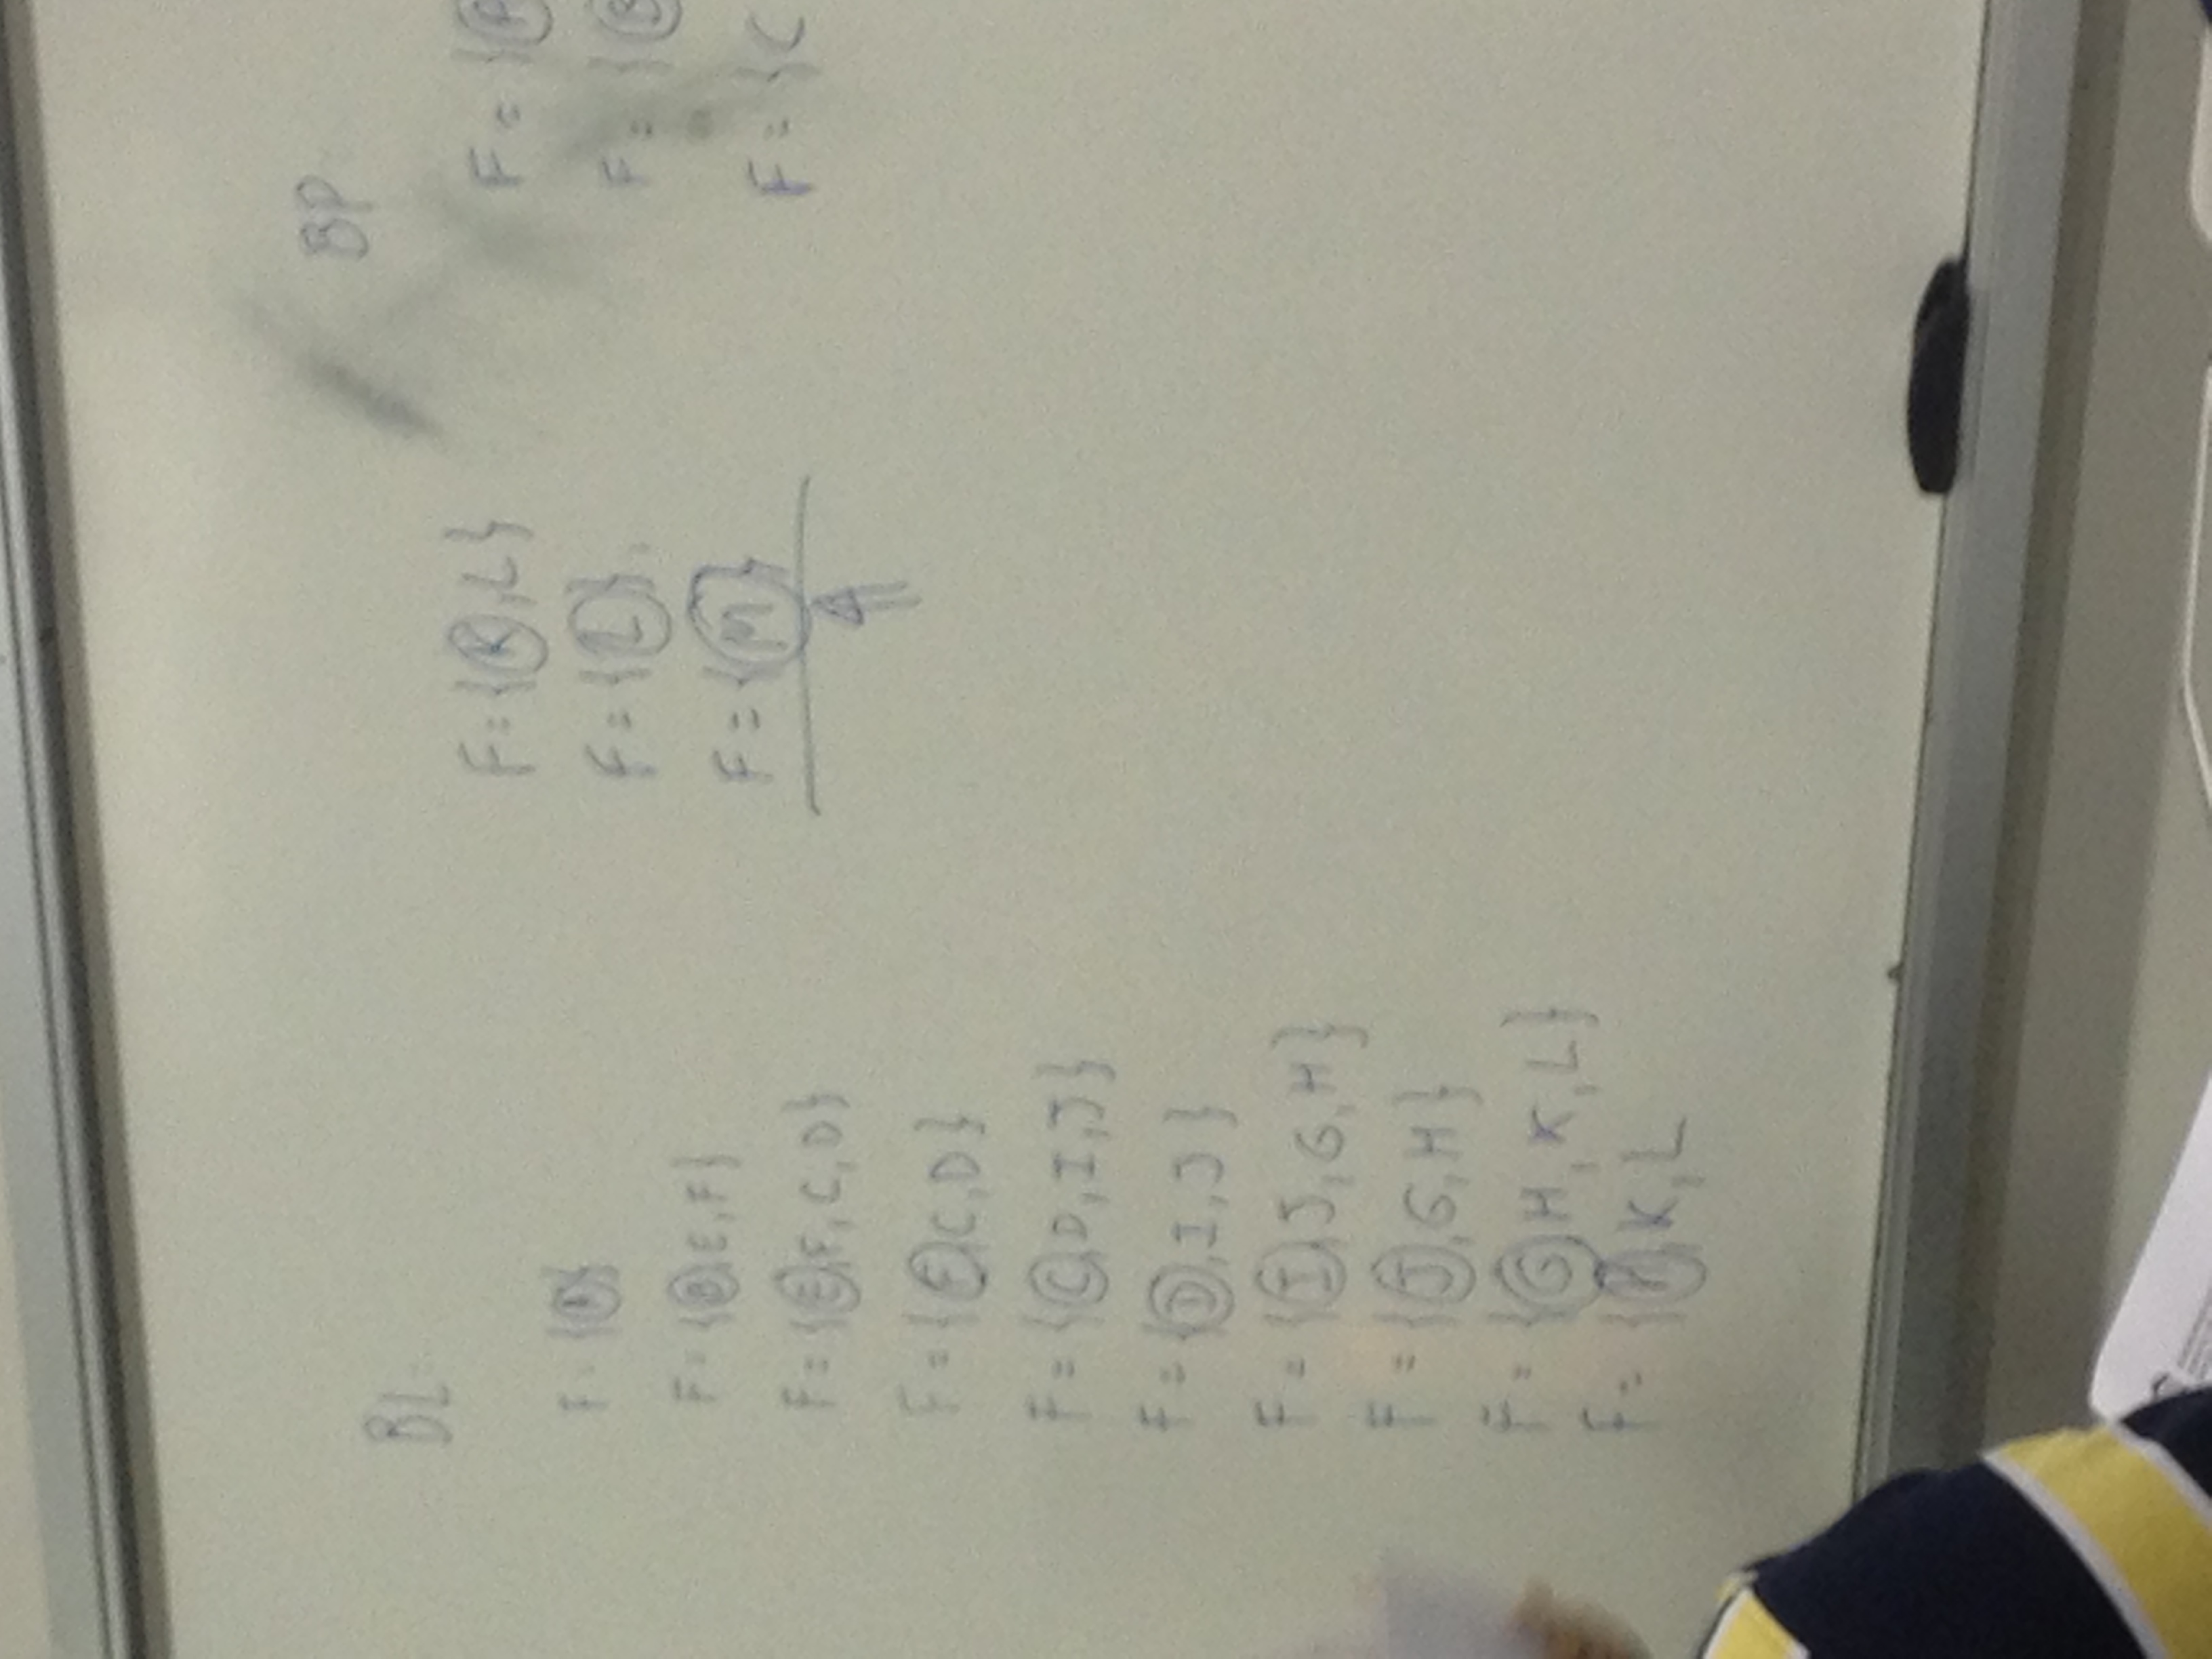 BL
F = {A}
F = {B, E, F}
F = {E, F, C, D}
F = {F, C, D}
F = {C, D, I, J}
F = {D, I, J}
F = {I, J, G, H}
F = {J, G, H}
F = {G, H, K, L}
F = {H, K, L
F = {K, L}
F = {L}.
F = {M}
BP
F = {A
F = {B
F = {C